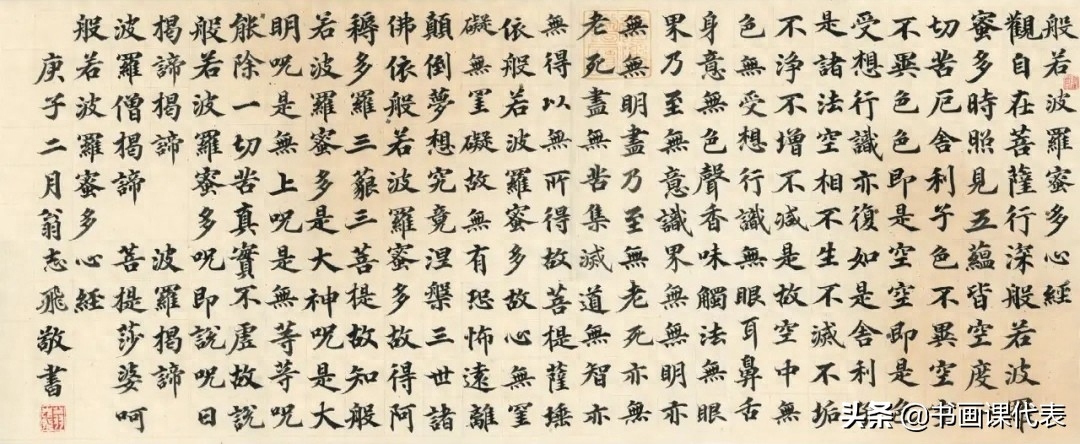 般若波羅蜜多心經
觀自在菩薩行深般若波羅
蜜多時照見五蘊皆空度
切苦厄舍利子色不異空
不異色色即是空空即是色
受想行識亦復如是舍利
是諸法空相不生不滅不垢
不淨不增不減是故空中無
色無受想行識無眼耳鼻舌
身意無色聲香味觸法無眼
界乃至無意識界無無明亦
無無明盡乃至無老死亦無
老死盡無苦集滅道無智亦
無得以無所得故菩提薩埵
依般若波羅蜜多故心無罣
礙無罣礙故無有恐怖遠離
顛倒夢想究竟涅槃三世諸
佛依般若波羅蜜多故得阿
耨多羅三藐三菩提故知般
若波羅蜜多是大神呪是大
明呪是無上呪是無等等呪
能除一切苦真實不虛故說
般若波羅蜜多呪即說呪曰
揭諦揭諦 波羅揭諦
波羅僧揭諦 菩提莎婆呵
般若波羅蜜多心經
庚子二月翁志飛敬書
头条 @书画课代表